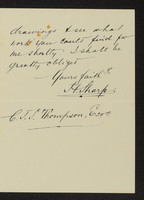 drawings & see what
work you could find for
me shortly I shall be
greatly obliged
Yours faith.ly
A. Sharp
C. J. S. Thompson, Esqre